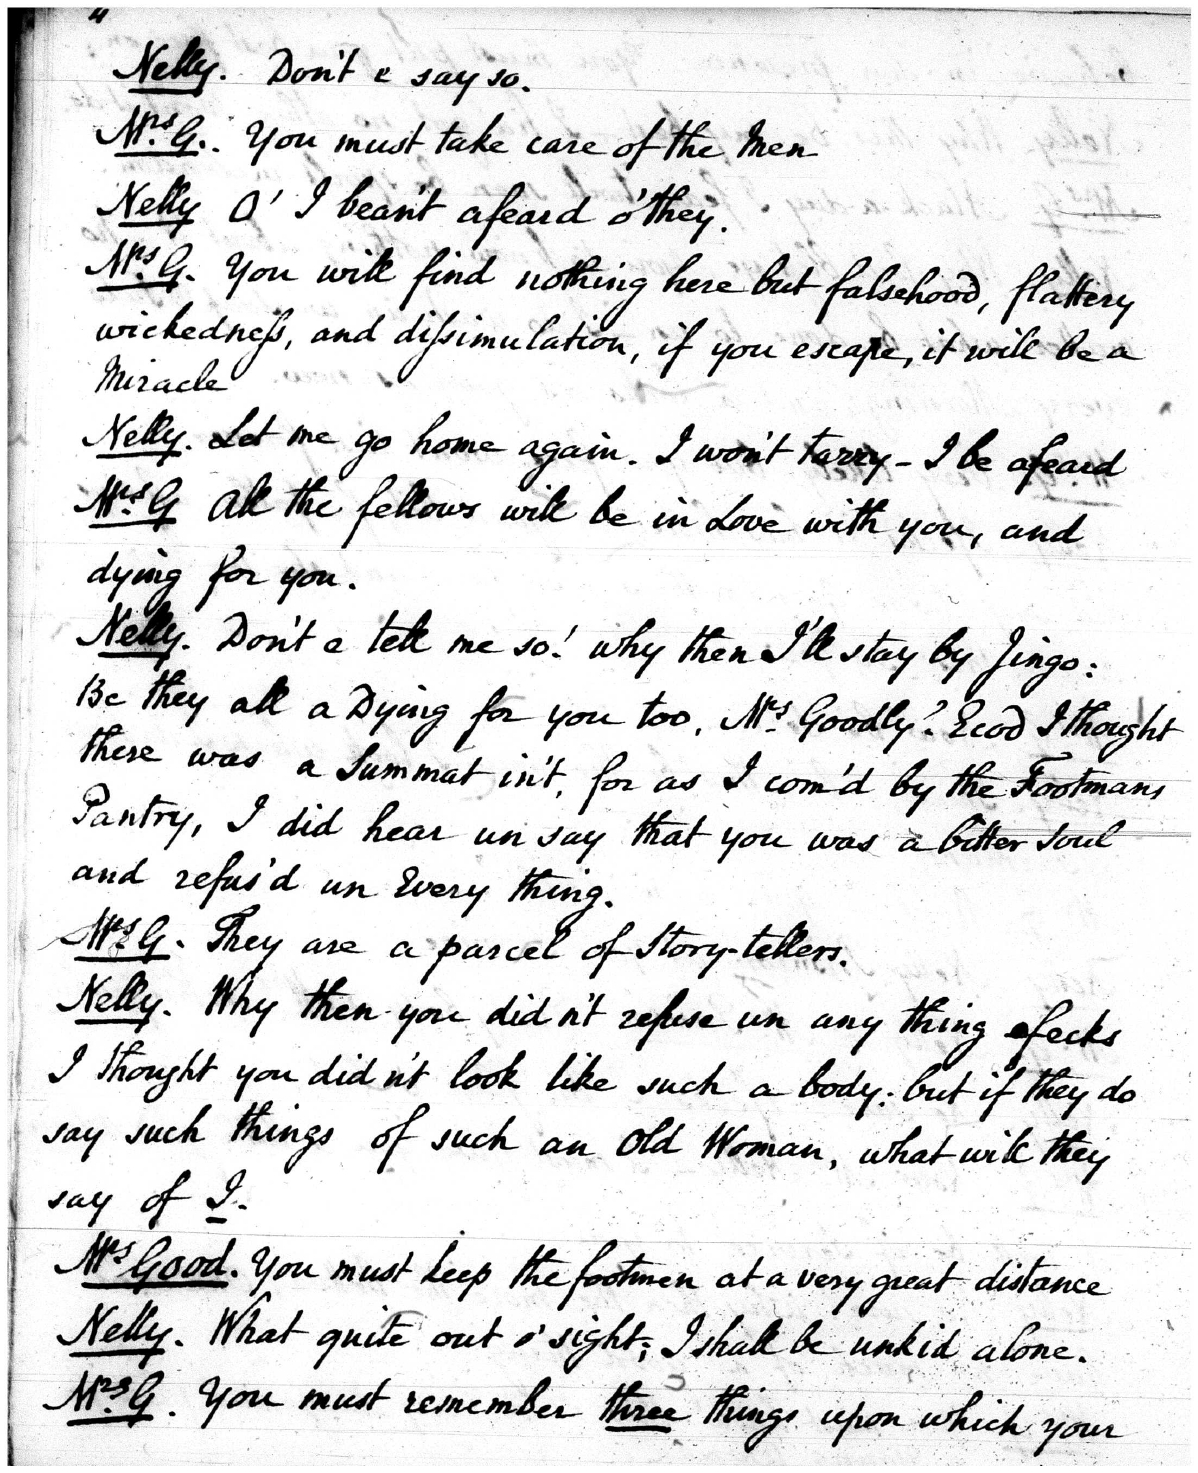 Nelly. Don't e say so.
Mrs. G. You must take care of the Men
Nelly O' I bean't afeard o' they.
Mrs. G. You will find nothing here but falsehood, flattery
wickedneſs, and diſsimulation, if you escape, it will be a
Miracle
Nelly. Let me go home again. I won't tarry - I be afeard
Mrs. G All the fellows will be in Love with you, and
dying for you.
Nelly. Don't e tell me so! why then I'll stay by Jingo:
Be they all a Dying for you too, Mrs. Goodly? Ecod I thought
there was a Summat in't, for as I com'd by the Footmans
Pantry, I did hear un say that you was a bitter Soul
and refus'd un Every thing.
Mrs. G. They are a parcel of Story-tellers.
Nelly. Why then you didn't refuse un any thing efecks
I thought you didn't look like such a body: but if they do
say such things of such an Old Woman, what will they
say of I.
Mrs Good. You must keep the footmen at a very great distance
Nelly. What quite out o' sight; I shall be unkid alone.
Mrs. G. You must remember three things upon which your